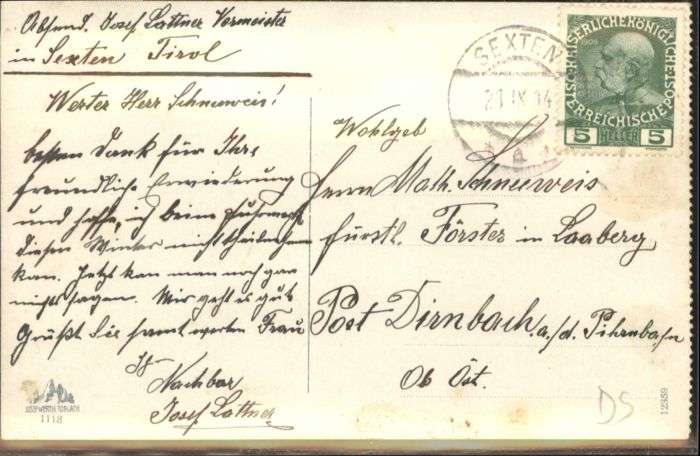 Absend. Josef Lattner Vermeister
in Sexten Tirol
Werter Herr Schneeweis!
besten Dank für Ihre
freundliche Erwiederung
und hoffe, ich beim
diesen Winter nicht theilnehmen
kan. Jetzt kan man noch gar
nichts sagen. Mir geht es gut
Grüßt Sie samt werten Frau
Ihr
Nachbar
Josef Lattner
1118
SEXTEN
21 IX 14
* a *
KAISERLICHE KÖNIGLICHE
ÖSTERREICHISCHE POST
1908
5 HELLER 5
Wohlgeb
Herrn Math. Schneeweis
fürstl. Förster in Laaberg
Post Dirnbach a./d. Pihrnbahn
Ob Öst.
DS
12359